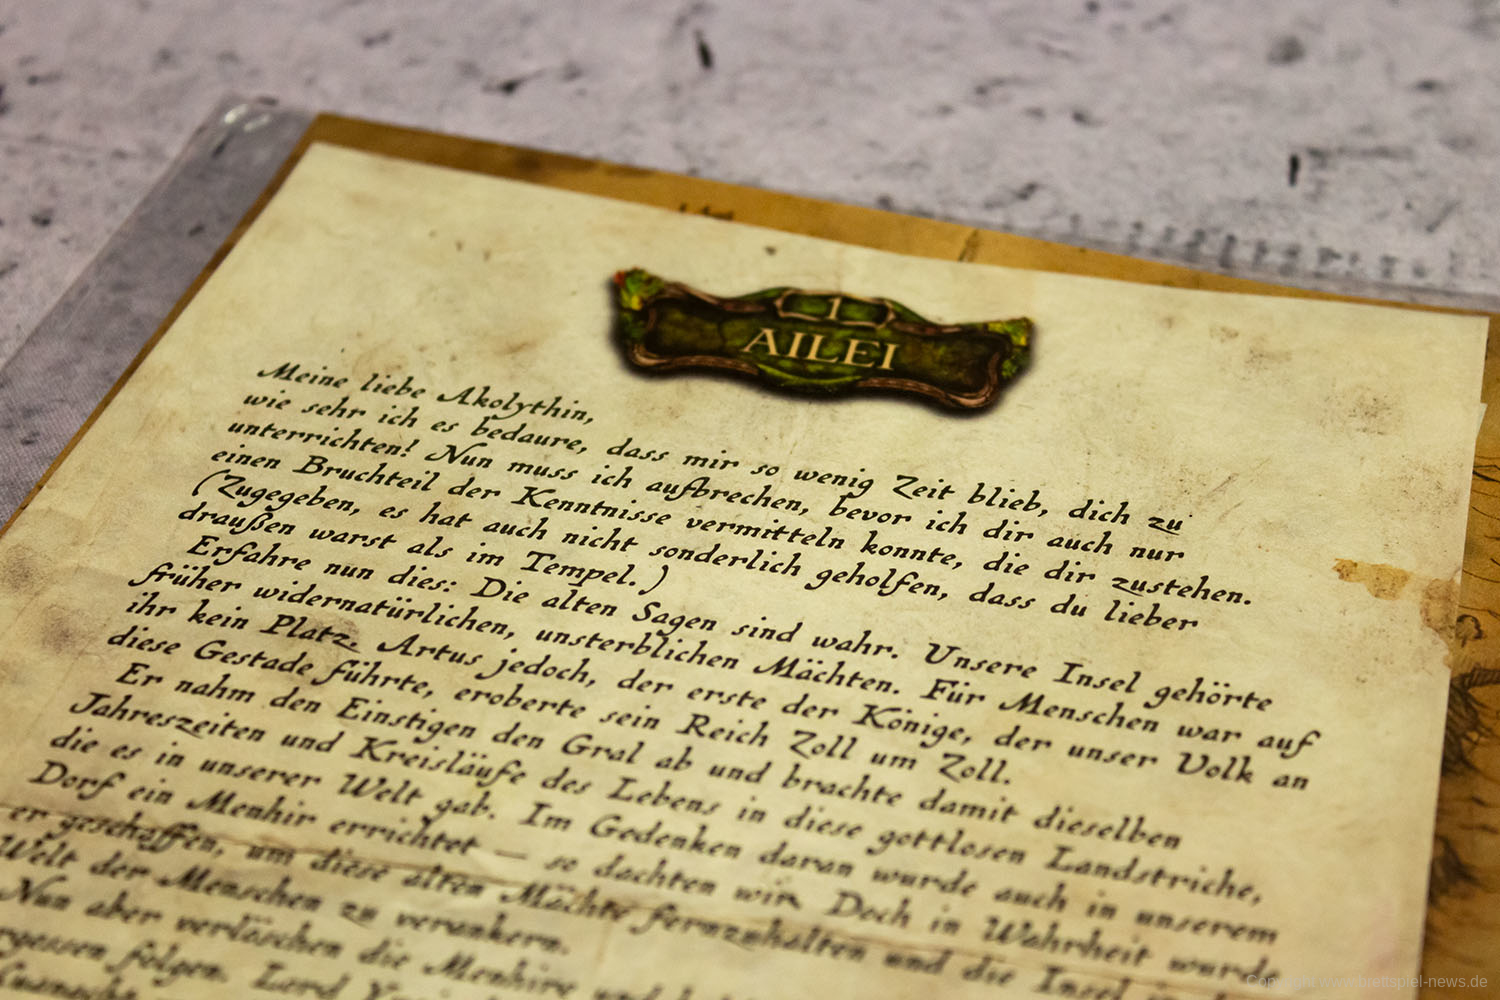 1
AILEI
Meine liebe Akolythin,
wie sehr ich es bedaure, dass mir so wenig Zeit blieb, dich zu
unterrichten! Nun muss ich aufbrechen, bevor ich dir auch nur
einen Bruchteil der Kenntnisse vermitteln konnte, die dir zustehen.
(Zugegeben, es hat auch nicht sonderlich geholfen, dass du lieber
draußen warst als im Tempel.)
Erfahre nun dies: Die alten Sagen sind wahr. Unsere Insel gehörte
früher widernatürlichen, unsterblichen Mächten. Für Menschen war auf
ihr kein Platz. Artus jedoch, der erste der Könige, der unser Volk an
diese Gestade führte, eroberte sein Reich Zoll um Zoll.
Er nahm den Einstigen den Gral ab und brachte damit dieselben
Jahreszeiten und Kreisläufe des Lebens in diese gottlosen Landstriche,
die es in unserer Welt gab. Im Gedenken daran wurde auch in unserem
Dorf ein Menhir errichtet – so dachten wir. Doch in Wahrheit wurde
er geschaffen, um diese alten Mächte fernzuhalten und die Insel
Welt der Menschen zu verankern.
Nun aber verlöschen die Menhire und
folgen. Lord
Copyright www.brettspiel-news.de